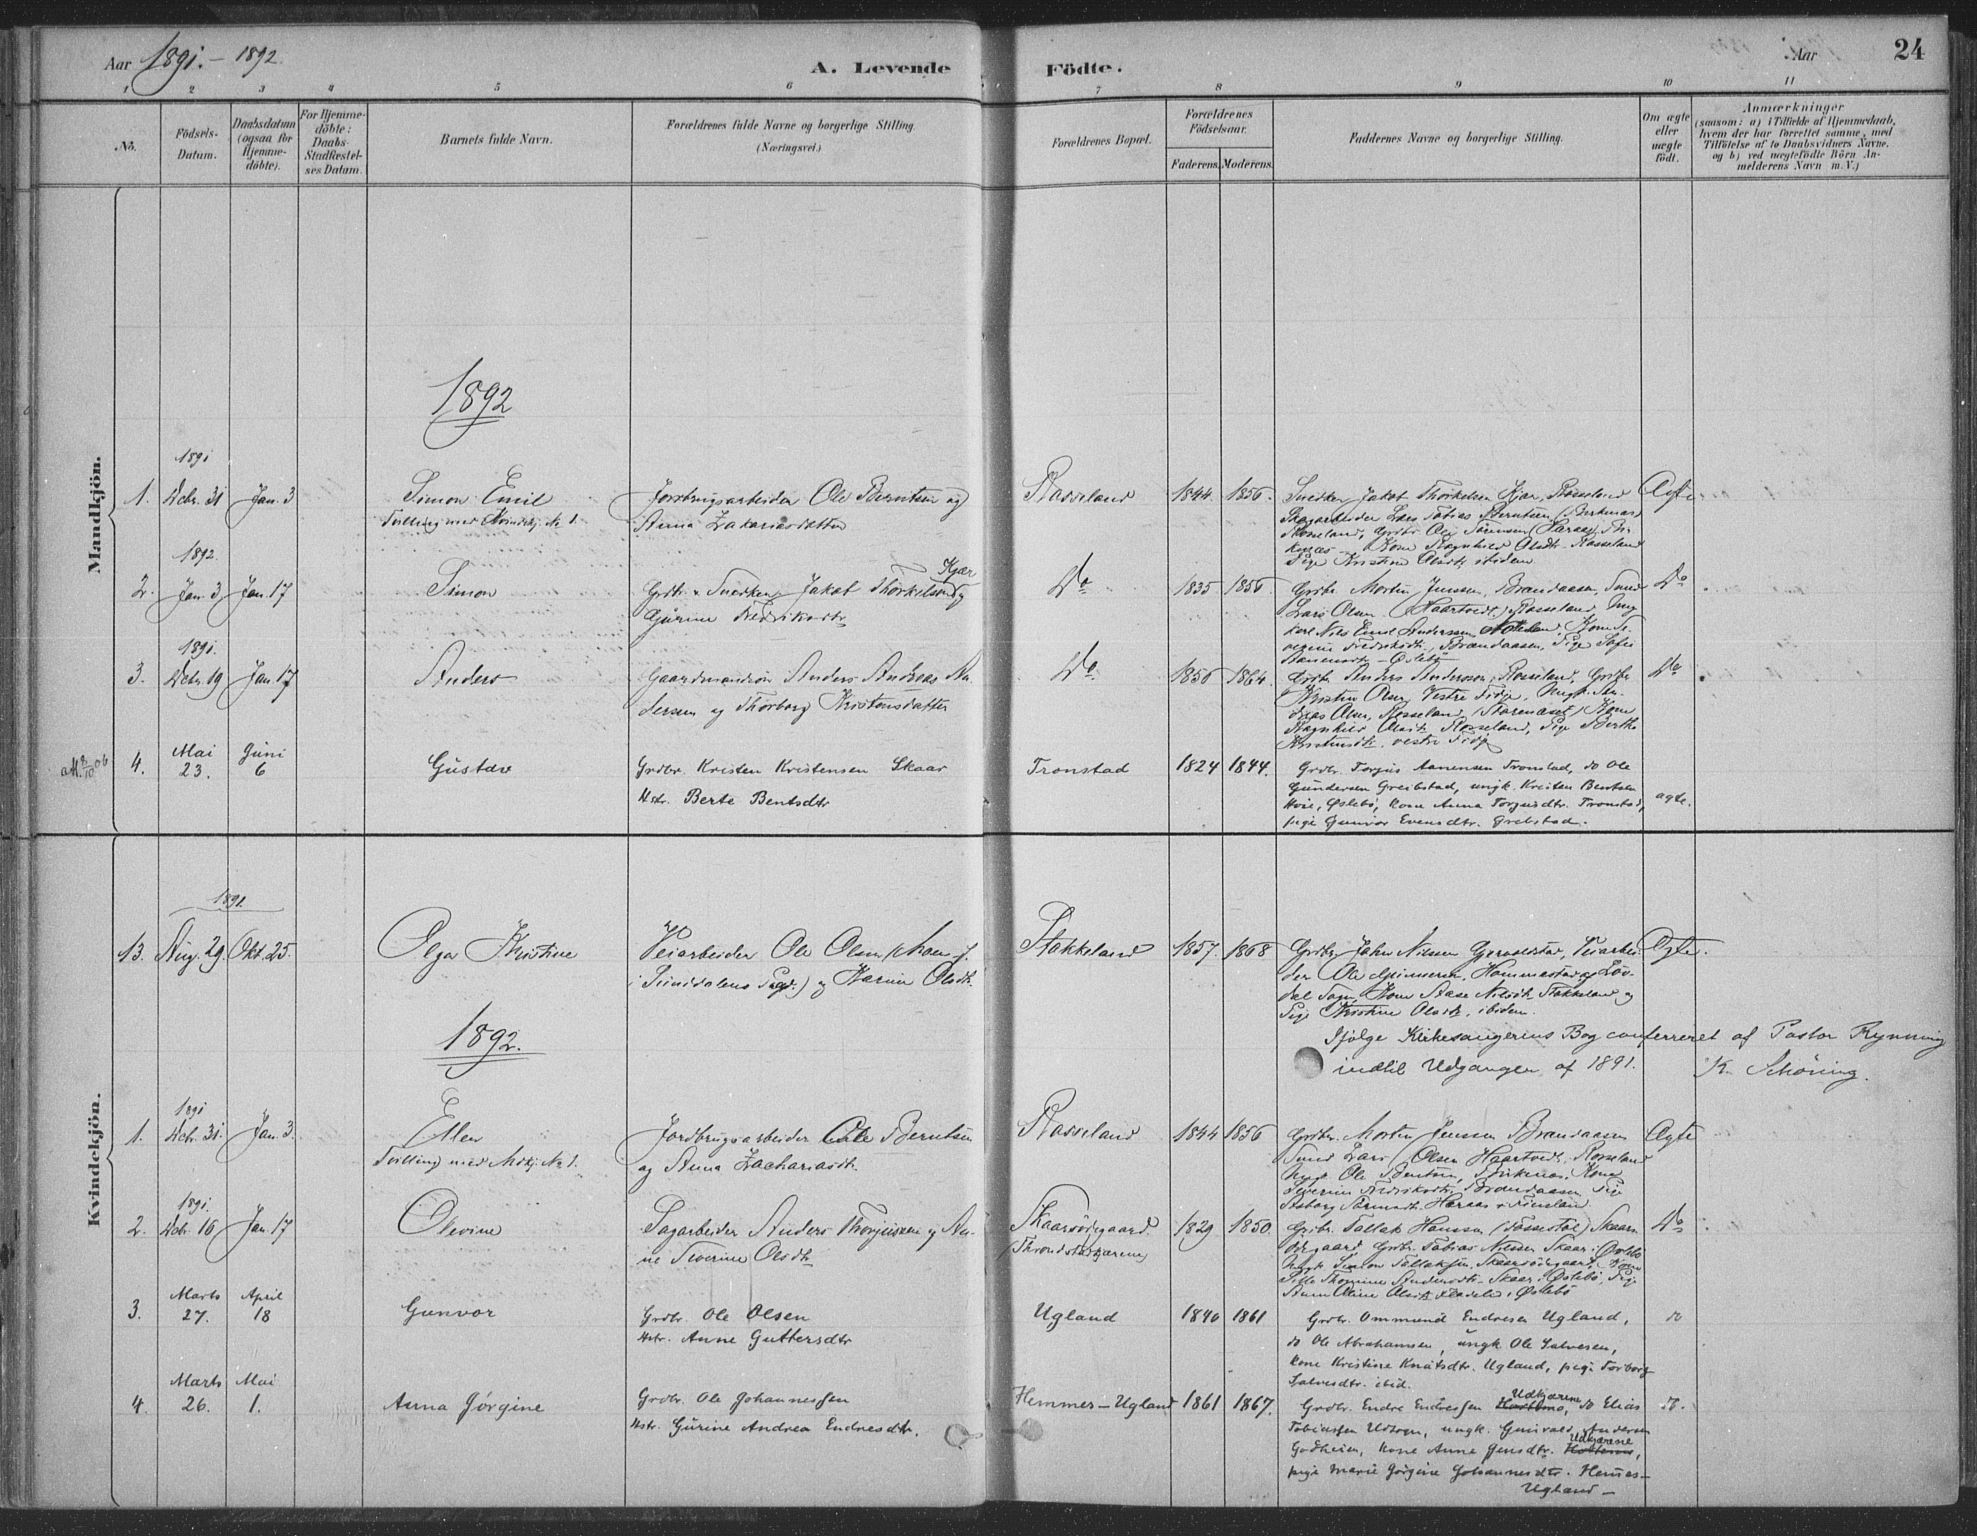 Aar 1891. – 1892.
A. Levende Födte.
Aar 24
1 2 3 4 5 6 7 8 9 10 11
No.
Födsels-Datum.
Daabsdatum (ogsaa for Hjemme-döbte).
For Hjemme-döbte: Daabs-Stadfæstel-ses Datum.
Barnets fulde Navn.
Forældrenes fulde Navne og borgerlige Stilling. (Næringsvei.)
Forældrenes Bopæl.
Forældrenes Födselsaar.
Faderens. Moderens.
Faddernes Navne og borgerlige Stilling.
Om ægte eller uægte födt.
Anmærkninger
(saasom: a) i Tilfælde af Hjemmedaab,
hvem der har forrettet samme, med
Tilföielse af to Daabsvidners Navne.
og b) ved uægtefödte Börn An-
melderens Navn m. V.)
Mandkjön.
1892
1891
1. Dcbr. 31 Jan. 3 Simon Emil
Tvilling med Kvindekj. No 1.
Jordbrugsarbeider Ole Berntsen og
Anna Zakariasdatter
Rosseland 1844. 1856.
Snedker Jakob Thorkelsen Kjær, Rosseland
Lars Tobias Berntsen (Birkenæs)
Rosseland, Grdbr. Ole
Kone Ragnhild Olsdtr. Rosseland
Pige Kristine Olsdtr. ibidem
Ægte
1892
2. Jan. 3 Jan. 17 Simon
Grdbr. & Snedker Jakob Thorkelsen Kjær og
Gurine Fredriksdtr.
Do 1835 1856.
Grdbr. Morten Jensen, Brandaasen, Smed
Lars Olsen (Haartvedt) Rosseland, Ung-
karl Nils Emil Anderssen, Kone Se-
verine Fredriksdtr. Brandaasen, Pige Sofie
Aanensdtr. Öslebö
Do
1891.
3. Dcbr. 19 Jan. 17 Anders
Gaardmandssön Anders Andreas An-
dersen og Thorborg Kristensdatter
Do 1856 1864.
Grdbr. Anders Anderssen, Rosseland, Grdbr.
Kristen Olsen, Vestre Fidje, Ungk. An-
dreas Olsen, Rosseland, Kone
Ragnhild Olsdtr. Rosseland, Pige Berthe
Kristensdtr. vestre Fidje
Do
att. 8/10 06
4. Mai 23. Juni 6 Gustav
Grdbr. Kristen Kristensen Skaar
Hstr. Berte Bentsdtr
Tronstad 1824 1844.
Grdbr. Torjus Aanensen Tronstad, do Ole
Gundersen Greibstad, ungk. Kristen Bentsen
Öslebö, kone Anna Torjusdtr. Tronstad,
pige Gunvor Evensdtr. Grebstad.
ægte.
Kvindekjön.
1891
13. Aug. 29. Okt. 25. Olga Kristine
Veiarbeider Ole Olsen
i Sirdalens Sogn.) og Karine Olsdtr.
Stokkeland 1857. 1868
Grdbr. John Nilsen Gjervoldstad, Veiarbei-
der Ole
Kone Aase Nilsdtr. Stokkeland og
Pige Kristine Olsdtr. ibidem.
Ægte.
1892.
Ifölge Kirkesangerens Bog conferreret af Pastor Rynning
indtil Udgangen af 1891. K. Schöning.
1891
1. Dcbr. 31. Jan. 3. Ellen
Tvilling med Mdkj. No 1.
Jordbrugsarbeider Ole Berntsen
og Anna Zachariasdtr.
Rosseland 1844 1856
Grdbr. Morten Jensen Brandaasen
Smed Lars Olsen Haartvedt, Rosseland
Ungk. Ole Berntsen, Birkenæs, Kone
Severine Fredriksdtr. Brandaasen, Pige
Ægte
1891.
2. Dcbr. 16 Jan. 17 Olevine
Sagarbeider Anders Thorjussen og An-
ne Severine Olsdtr.
Skaarsödegaard
(Throndstadkjærene)
1829 1850.
Grdbr. Tallak Hansen Skaars-
ödegaard Grdbr. Tobias Nilsen Skaar i Öslebö
Ungk. Simon Tallaksen, Skaarsödegaard, Kone
Thomine Andersdtr. Skaar i Öslebö, Pige
Anne Oline Olsdtr. i Öslebö
Do
3. Marts 27. April 18 Gunvor
Grdbr. Ole Olsen
Hstr. Anne Guttersdtr
Ugland 1840 1861
Grdbr. Ommund Endresen Ugland,
do Ole Abrahamsen, ungk Ole Salvesen,
kone Kristine Knutsdtr. Ugland, pige Torborg
Salvesdtr. ibid.
do
4. Marts 26. Mai 1. Anna Jörgine
Grdbr. Ole Johannessen
Hstr. Gurine Andrea Endresdtr.
Hemmer – Ugland 1861 1867.
Grdbr. Endre Endressen Udkjærene, do Elias
Tobiassen Udsogn, ungk. Gunvald Andersen
Godheien, kone Anne Jensdtr. Udkjærene,
pige Marie Jörgine Johannesdtr. Hemes-
Ugland –
do.